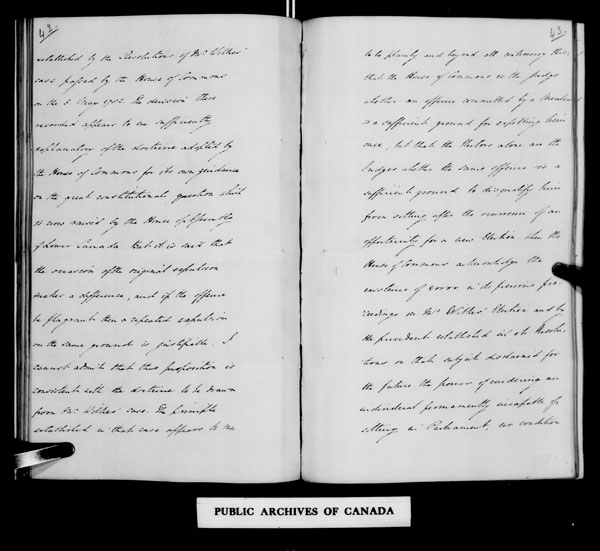 42.
established by the Resolutions of Mr. Wilkes'
case passed by the House of Commons
on the 3 May 1782 The decision there
recorded appears to me sufficiently
explanatory of the doctrine adopted by
the House of Commons for its own guidance
on the great constitutional question which
is now raised by the House of Assembly
of Lower Canada. But it is said that
the occasion of the original expulsion
makes a difference, and if the offence
be flagrant then a repeated expulsion
on the same ground is justifiable. I
cannot admit that this proposition is
consistent with the doctrine to be drawn
from Mr. Wilkes' case. The principle
established in that case appears to me
43.
to be plainly and beyond all controversy this,
that the House of Commons is the judge
whether an offence committed by a Member
is a sufficient ground for expelling him
once, but that the Electors alone are the
Judges whether the same offence is a
sufficient ground to disqualify him
from sitting after the occurrence of an
opportunity for a new Election. When the
House of Commons acknowledge the
existence of error in its previous pro-
ceedings on Mr. Wilkes' Election and by
the precedent established in its Resolu-
tions on that subject disclaimed for
the future the power of rendering an
individual permanently incapable of
sitting in Parliament, no condition
PUBLIC ARCHIVES OF CANADA